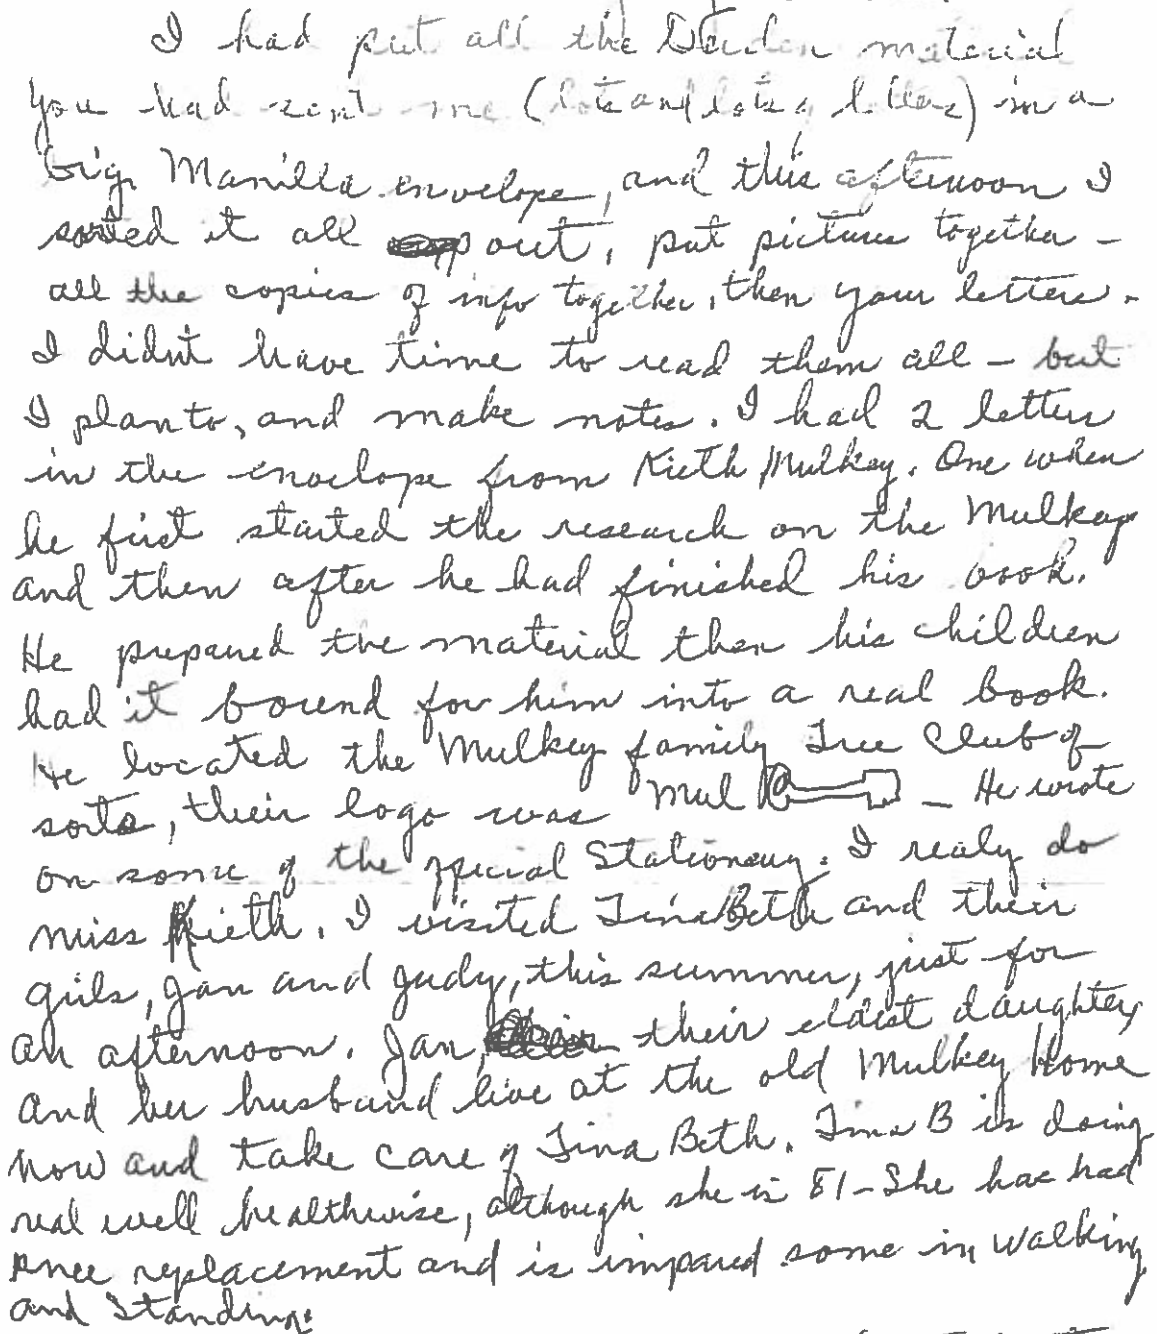 I had put all the material
you had sent me (lots and lots of letters) in a
big Manilla envelope, and this afternoon I
sorted it all out, put pictures together -
all the copies of info together, then your letters.
I didn't have time to read them all - but
I plan to, and make notes. I had 2 letters
in the envelope from Kieth Mulkey. One when
he first started the research on the Mulkeys
and then after he had finished his book.
He prepared the material then his children
had it bound for him into a real book.
He located the Mulkey family Tree Club of
sorts, their logo was Mul - He wrote
on some of the special Stationary. I realy do
miss Kieth. I visited Tina Beth and their
girls, Jan and Judy, this summer, just for
an afternoon. Jan, their eldest daughter,
and her husband live at the old Mulkey Home
now and take care of Tina Beth. Tina B is doing
real well healthwise, although she is 81 - She has had
knee replacement and is impared some in walking
and standing.